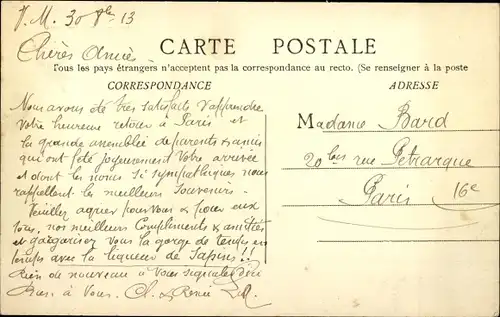 J. M. 30 8bre 13
Chères Amies
CARTE POSTALE
Tous les pays étrangers n'acceptent pas la correspondance au recto. (Se renseigner à la poste
CORRESPONDANCE
ADRESSE
Nous avons été très satisfaits d'apprendre
votre heureux retour à Paris et
la grande assemblée de parents & amis
qui ont fêté joyeusement votre arrivée
et dont les noms si sympathiques nous
rappellent les meilleurs souvenirs.
Veuillez agréer pour vous & pour eux
tous, nos meilleurs compliments & amitiés
et gargarisez vous la gorge de temps en
temps avec la liqueur de Sapins!!
Rien de nouveau à vous signaler
Bien à vous. Ch. & Renée
Madame Bard
20 bis rue Pétrarque
Paris 16e